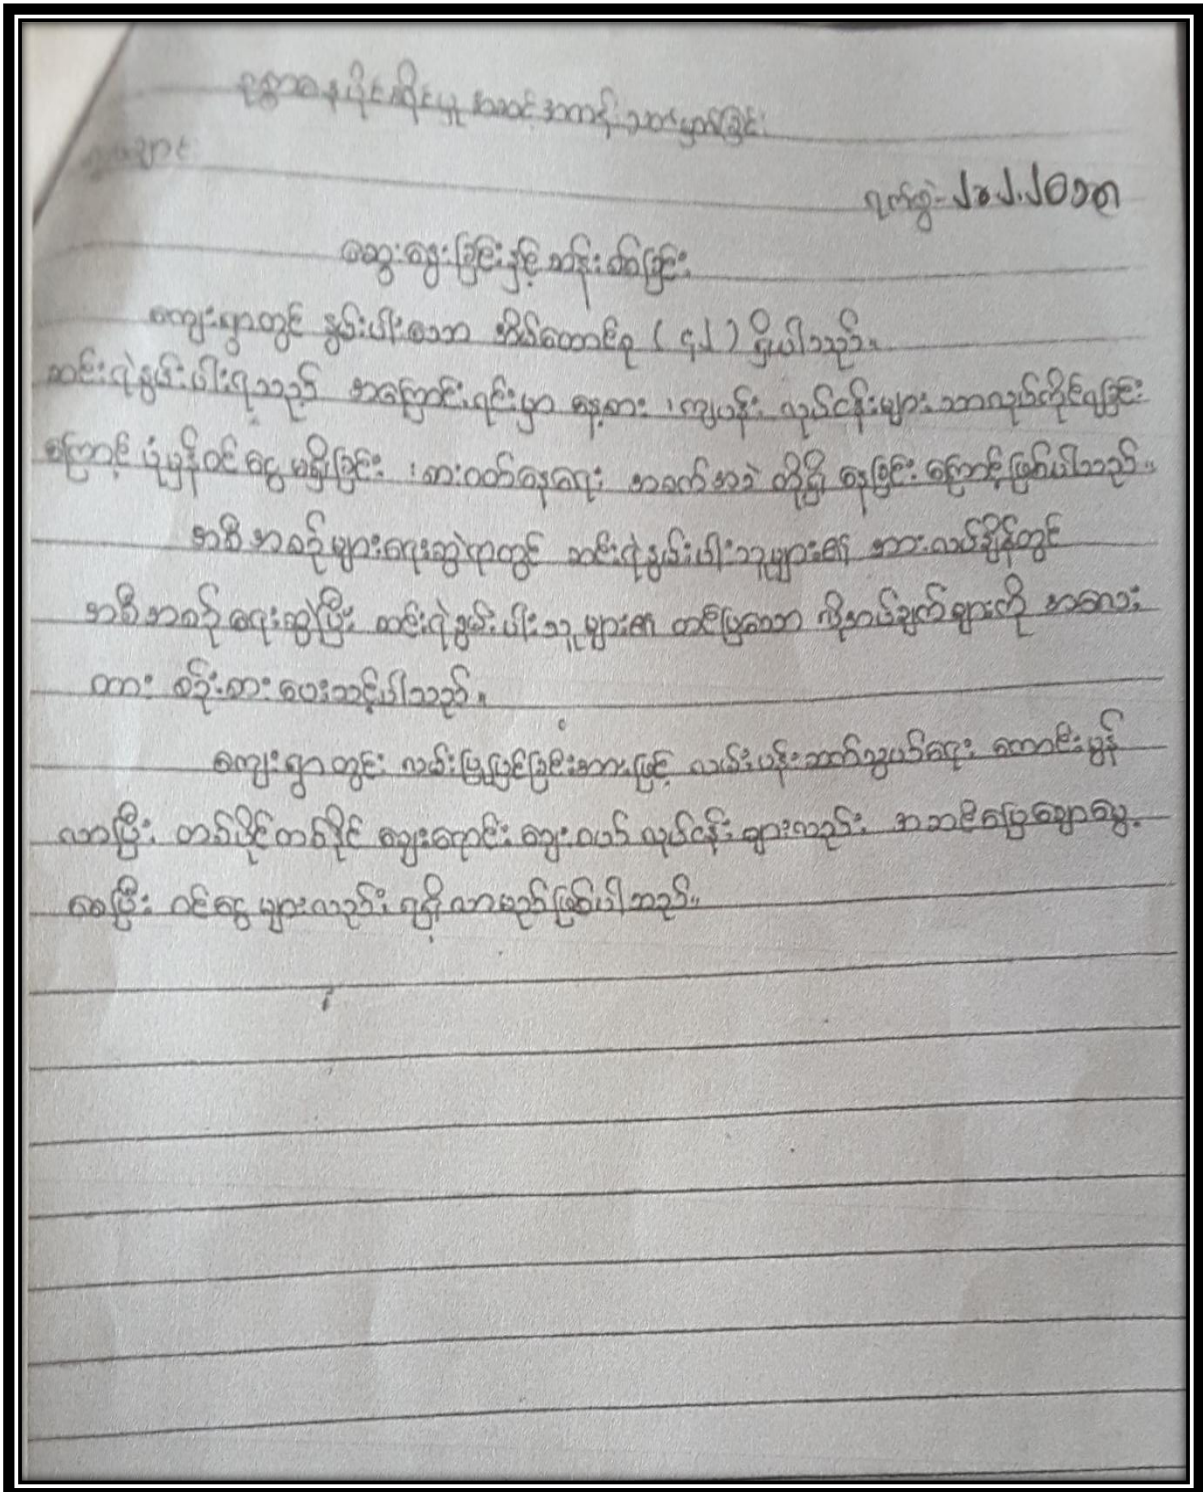 ပိုင်ဆိုင်မှု အဆင့်အတန်း သတ်မှတ်ခြင်း
ရက်စွဲ-
ဆွေးနွေးခြင်းနှင့် ဆန်းစစ်ခြင်း
ကျေးရွာတွင် နွမ်းပါးသော အိမ်ထောင်စု ( ၄၂ ) ရှိပါသည်။
ဆင်းရဲနွမ်းပါးရသည့် အကြောင်းရင်းမှာ နေ့စား ၊ ကျပန်း လုပ်ငန်းများသာလုပ်ကိုင်ရခြင်း
ကြောင့် ပုံမှန်ဝင်ငွေ မရှိခြင်း ၊ စားဝတ်နေရေး အခက်အခဲ တို့ရှိ နေခြင်း ကြောင့်ဖြစ်ပါသည်။
အစီအစဉ်များရေးဆွဲရာတွင် ဆင်းရဲနွမ်းပါးသူများ၏ အားလပ်ချိန်တွင်
အစီအစဉ် ရေးဆွဲပြီး ဆင်းရဲနွမ်းပါးသူများ၏ တင်ပြသော လိုအပ်ချက်များကို အလေး
ထား စဉ်းစား ပေးသင့်ပါသည်။
ကျေးရွာတွင်း လမ်းပြုပြင်ခြင်းအားဖြင့် လမ်းပန်းဆက်သွယ်ရေး ကောင်းမွန်
လာပြီး တစ်ပိုင်တစ်နိုင် ဈေးရောင်း ဈေးဝယ် လုပ်ငန်း များလည်း အဆင်ပြေချောမွေ့
စေပြီး ဝင်ငွေ များလည်း ရရှိလာမည်ဖြစ်ပါသည်။